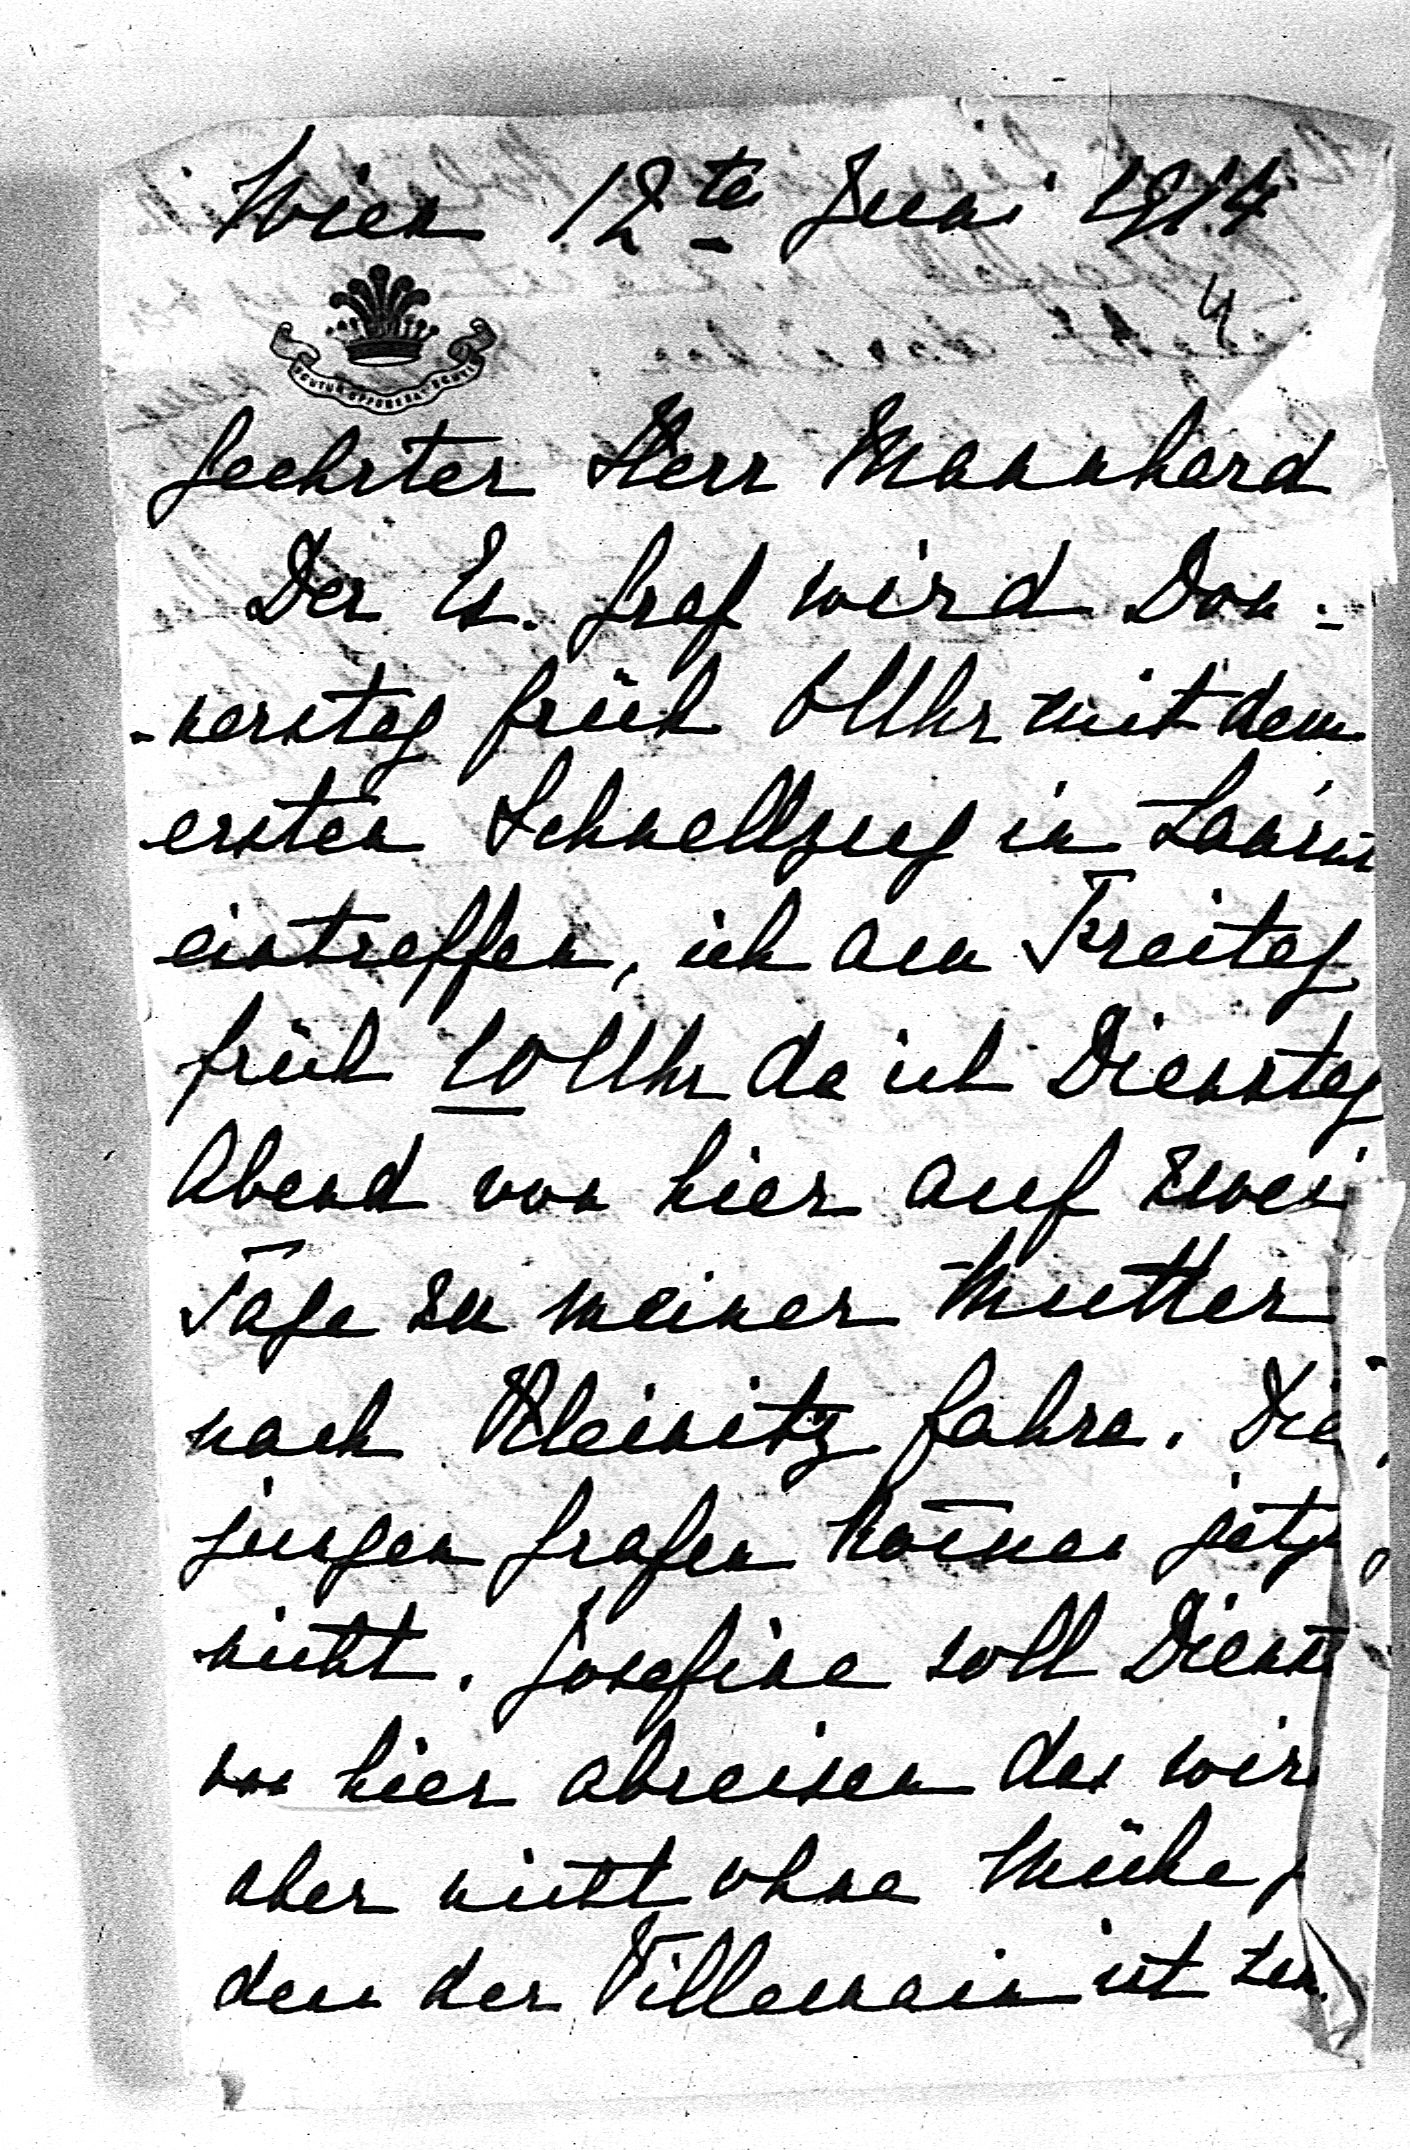 Wien 12ten Juni 1914
Geehrter Herr Mannhard
Der Er. Graf wird Don-
-nerstag früh 6 Uhr mit dem
ersten Schnellzug in
eintreffen, ich am Freitag
früh 10 Uhr da ich Dienstag
Abend von hier auf zwei
Tage zu meiner Mutter
nach Kleinitz fahre. Die
jungen Grafen kommen jetzt
nicht. Josefine soll Dienst
von hier abreisen das wird
aber nicht ohne Mühe,
denn der ist